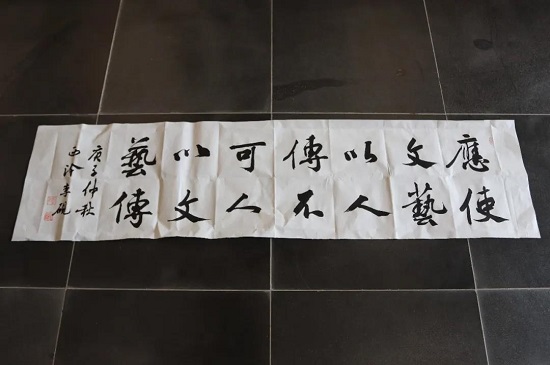 應使
文藝
以人
傳不
可人
以文
藝傳
庚子仲秋
西泠